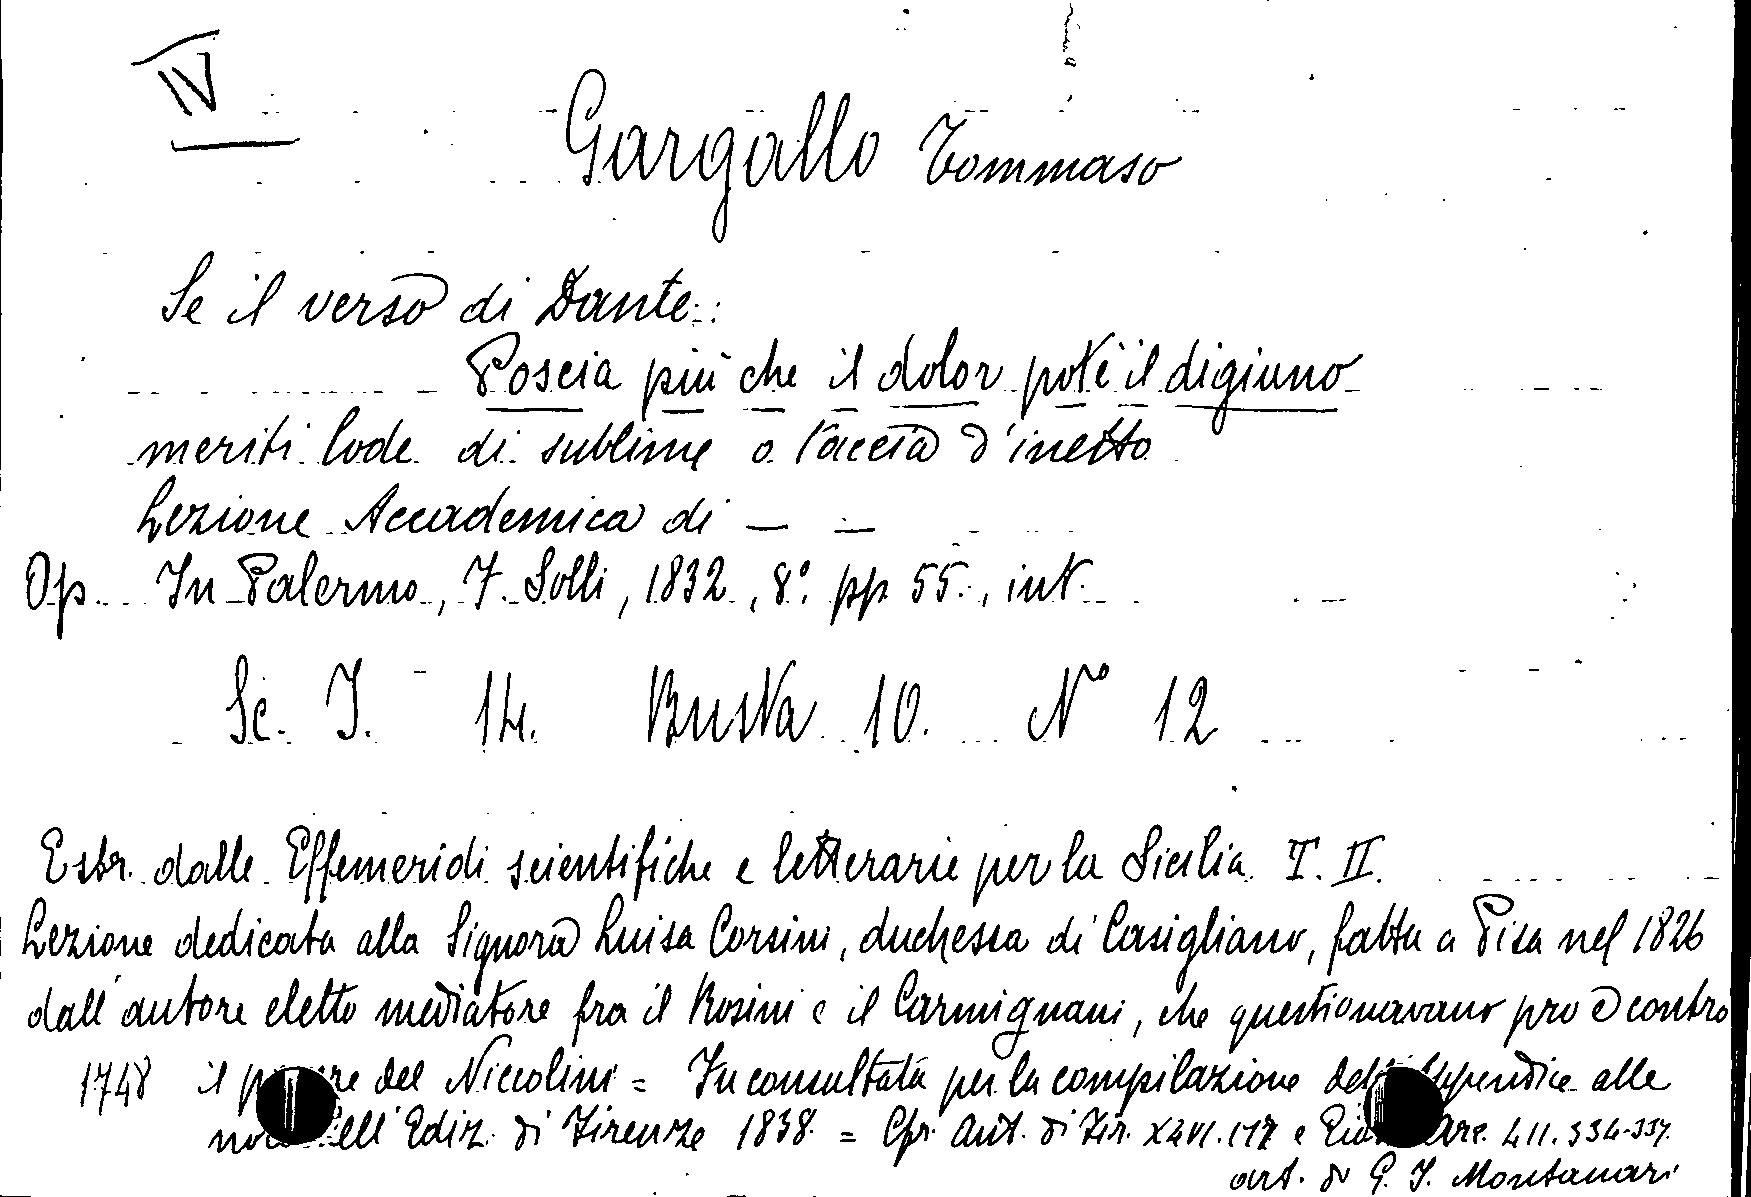 IV
Gargallo Tommaso
Se il verso di Dante:
Poscia più che il dolor potè il digiuno
meriti lode di sublime o taccia d'inetto
Lezione Accademica di — —
Op. In Palermo, F. Solli, 1832, 8.° pp 55., int.
Sc. I. 14. Busta 10. N° 12
Estr. dalle Effemeridi scientifiche e letterarie per la Sicilia T. II.
Lezione dedicata alla Signora Luisa Corsini, duchessa di Casigliano, fatta a Pisa nel 1826
dall'autore eletto mediatore fra il Rosini e il Carmignani, che questionavano pro e contro
1748 il del Niccolini = Fu consultata per la compilazione Appendice alle
Ediz. di Firenze 1838 = Cfr. Ant. di Fir. e Arc. 334-337.
art. di G. I. Montanari